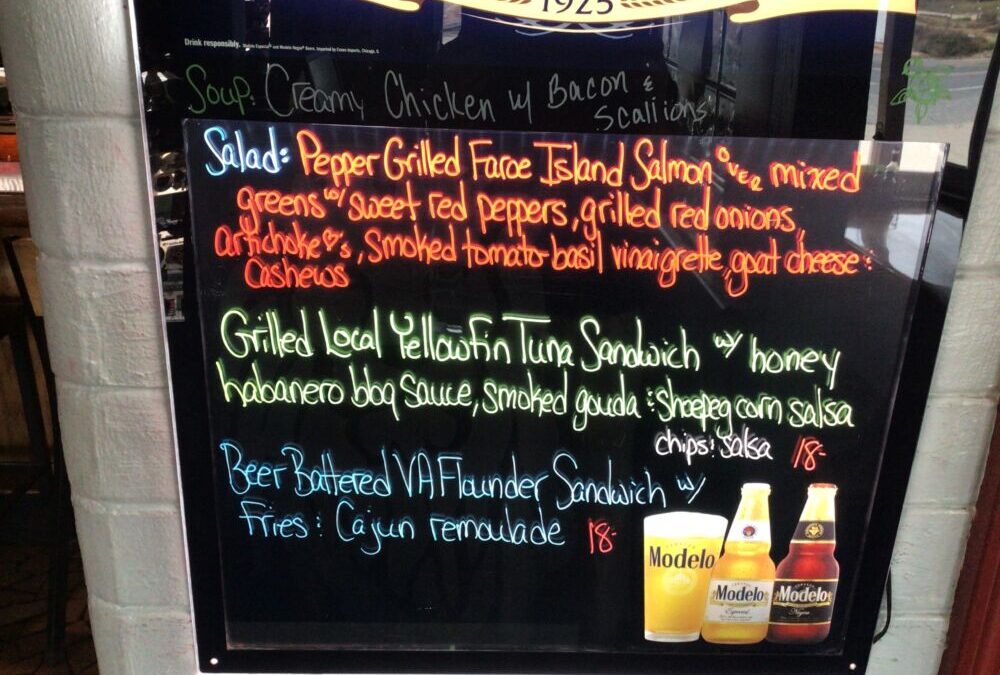 1925
Drink responsibly.
Soup: Creamy Chicken w/ Bacon &
Scallions
Salad: Pepper Grilled Faroe Island Salmon OVER mixed
greens w/ sweet red peppers, grilled red onions,
Artichoke ♡'s, smoked tomato-basil vinaigrette, goat cheese &
Cashews
Grilled Local Yellowfin Tuna Sandwich w/ honey
habanero bbq sauce, smoked gouda & Shoepeg corn salsa
chips & salsa 18-
Beer Battered VA Flounder Sandwich w/
Fries & Cajun remoulade 18-
Modelo
Modelo
Especial
Modelo
Negra